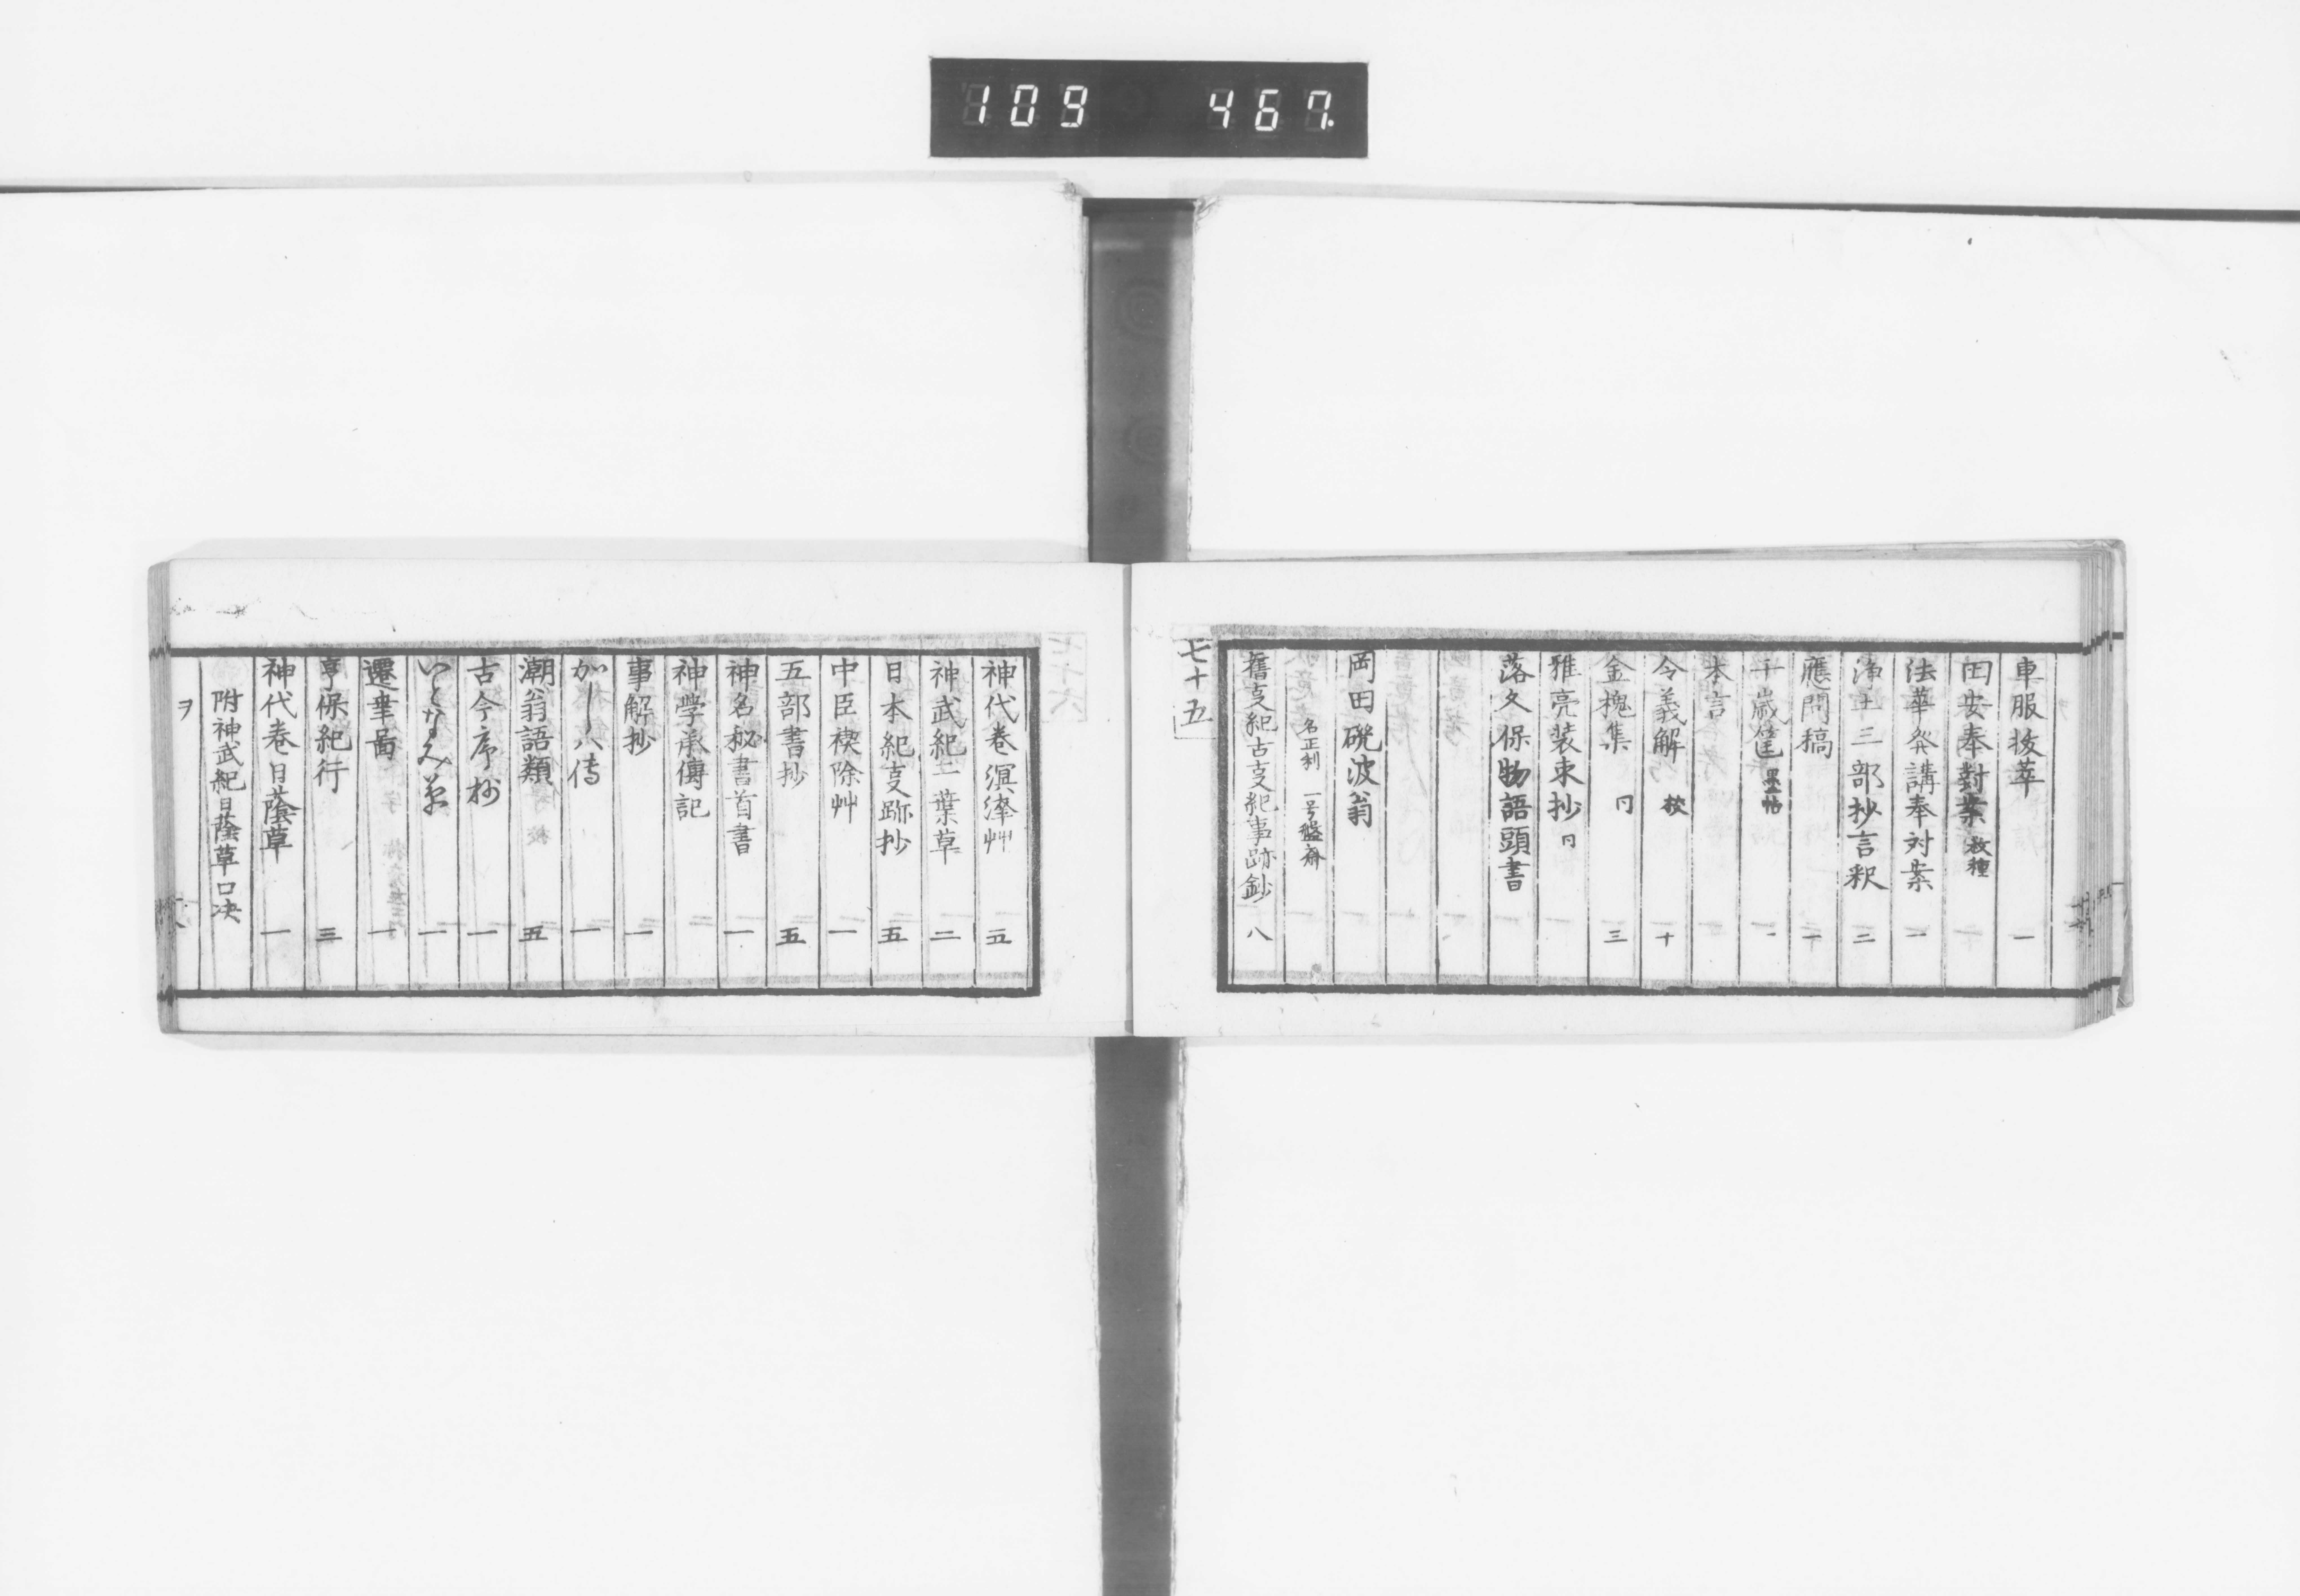 109 467.
車服抜萃 一
田安奉對案 数種
法華発講奉対案 一
浄土三部抄言釈 二
應問稿 一
千歳筐 墨帖 一
本言
令義解 校 十
金槐集 同 三
雅亮装束抄 同
落久保物語頭書
岡田硯波翁
名正利 一号盤齋
舊支紀古支紀事跡鈔 八
七十五
神代巻溟涬艸 五
神武紀二葉草 二
日本紀支跡抄 五
中臣禊除艸 一
五部書抄 五
神名秘書首書 一
神学承傳記
事解抄 一
一
潮翁語類 五
古今序抄 一
いとなみ草 一
遷 一
享保紀行 三
神代巻日蔭草 一
附神武紀日蔭草口决
ヲ